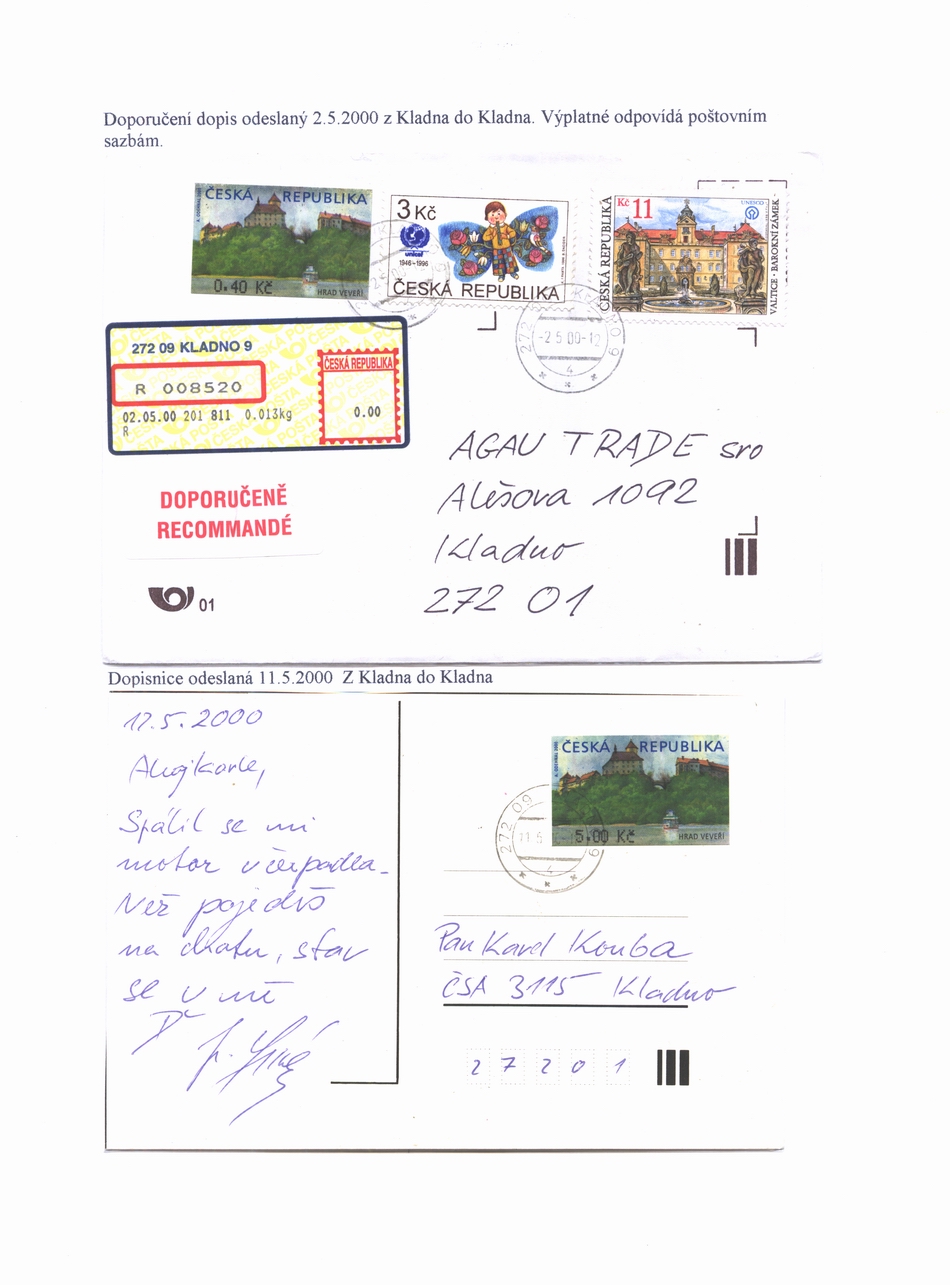 Doporučení dopis odeslaný 2.5.2000 z Kladna do Kladna. Výplatné odpovídá poštovním
sazbám.
ČESKÁ REPUBLIKA
0.40 Kč
HRAD VEVEŘÍ
3 Kč
unicef
1946-1996
ČESKÁ REPUBLIKA
Kč 11
UNESCO
ČESKÁ REPUBLIKA
VALTICE · BAROKNÍ ZÁMEK
272 09
-2.5.00-12
4
272 09 KLADNO 9
R 008520
02.05.00 201 811 0.013kg
R
ČESKÁ REPUBLIKA
0.00
AGAU TRADE sro
Alešova 1092
Kladno
272 01
DOPORUČENĚ
RECOMMANDÉ
01
Dopisnice odeslaná 11.5.2000 Z Kladna do Kladna
17.5.2000
Spálil se mi
motor v čerpadla
Než pojedeš
na chatu, stav
se u mě
ČESKÁ REPUBLIKA
5.00 Kč
HRAD VEVEŘÍ
272 09
4
Pan Karel Kouba
ČSA 3115 Kladno
2 7 2 0 1